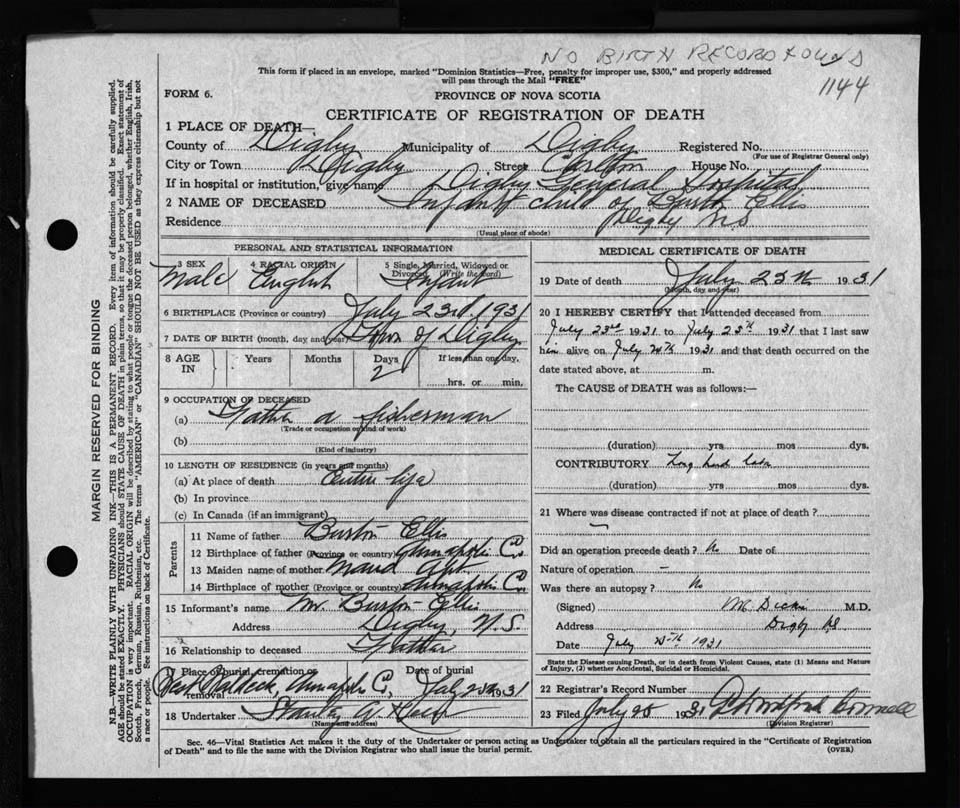 NO BIRTH RECORD FOUND
This form if placed in an envelope, marked "Dominion Statistics—Free, penalty for improper use, $300," and properly addressed
will pass through the Mail "FREE"
1144
FORM 6.
PROVINCE OF NOVA SCOTIA
CERTIFICATE OF REGISTRATION OF DEATH
1 PLACE OF DEATH—
County of Digby Municipality of Digby Registered No.
(For use of Registrar General only)
City or Town Digby Street Carlton House No.
If in hospital or institution, give name Digby General Hospital
2 NAME OF DECEASED Infant child of Burton Ellis
Residence Digby N.S
(Usual place of abode)
MARGIN RESERVED FOR BINDING
N.B.—WRITE PLAINLY WITH UNFADING INK—THIS IS A PERMANENT RECORD. Every item of information should be carefully supplied.
AGE should be stated EXACTLY. PHYSICIANS should STATE CAUSE OF DEATH in plain terms, so that it may be properly classified. Exact statement of
OCCUPATION is very important. RACIAL ORIGIN will be described by stating to what people or tongue the deceased person belonged, whether English, Irish,
Scotch, French, German, Russian, Ruthenian, etc. The terms "AMERICAN" or "CANADIAN" SHOULD NOT BE USED as they express citizenship but not
a race or people. See instructions on back of Certificate.
PERSONAL AND STATISTICAL INFORMATION
3 SEX 4 RACIAL ORIGIN 5 Single, Married, Widowed or
Divorced, (Write the word)
Male English Infant
6 BIRTHPLACE (Province or country) July 23rd 1931
7 DATE OF BIRTH (month, day and year) Town of Digby
8 AGE IN Years Months Days If less than one day,
2 hrs. or min.
9 OCCUPATION OF DECEASED
(a) Father a fisherman
(Trade or occupation or kind of work)
(b)
(Kind of industry)
10 LENGTH OF RESIDENCE (in years and months)
(a) At place of death Entire life
(b) In province
(c) In Canada (if an immigrant)
Parents
11 Name of father Burton Ellis
12 Birthplace of father (Province or country) Annapolis C.
13 Maiden name of mother Maud
14 Birthplace of mother (Province or country) Annapolis C.
15 Informant's name Mr. Burton Ellis
Address Digby, N.S.
16 Relationship to deceased Father
17 Place of burial, cremation or removal Date of burial
Annapolis C, July 1931
18 Undertaker Stanley A
(Name and address)
MEDICAL CERTIFICATE OF DEATH
19 Date of death July 25th 1931
(Month, day and year)
20 I HEREBY CERTIFY that I attended deceased from
July 23rd 1931 to July 25th 1931 that I last saw
him alive on July 1931 and that death occurred on the
date stated above, at m.
The CAUSE of DEATH was as follows:—
(duration) yrs mos dys.
CONTRIBUTORY Long hard labor
(duration) yrs mos dys.
21 Where was disease contracted if not at place of death?
—
Did an operation precede death? No Date of
Nature of operation —
Was there an autopsy? No
(Signed) Dickie M.D.
Address Digby NS
Date July 25th 1931
State the Disease causing Death, or in death from Violent Causes, state (1) Means and Nature
of Injury, (2) whether Accidental, Suicidal or Homicidal.
22 Registrar's Record Number
23 Filed July 25 1931
(Division Registrar)
Sec. 46—Vital Statistics Act makes it the duty of the Undertaker or person acting as Undertaker to obtain all the particulars required in the "Certificate of Registration
of Death" and to file the same with the Division Registrar who shall issue the burial permit. (OVER)